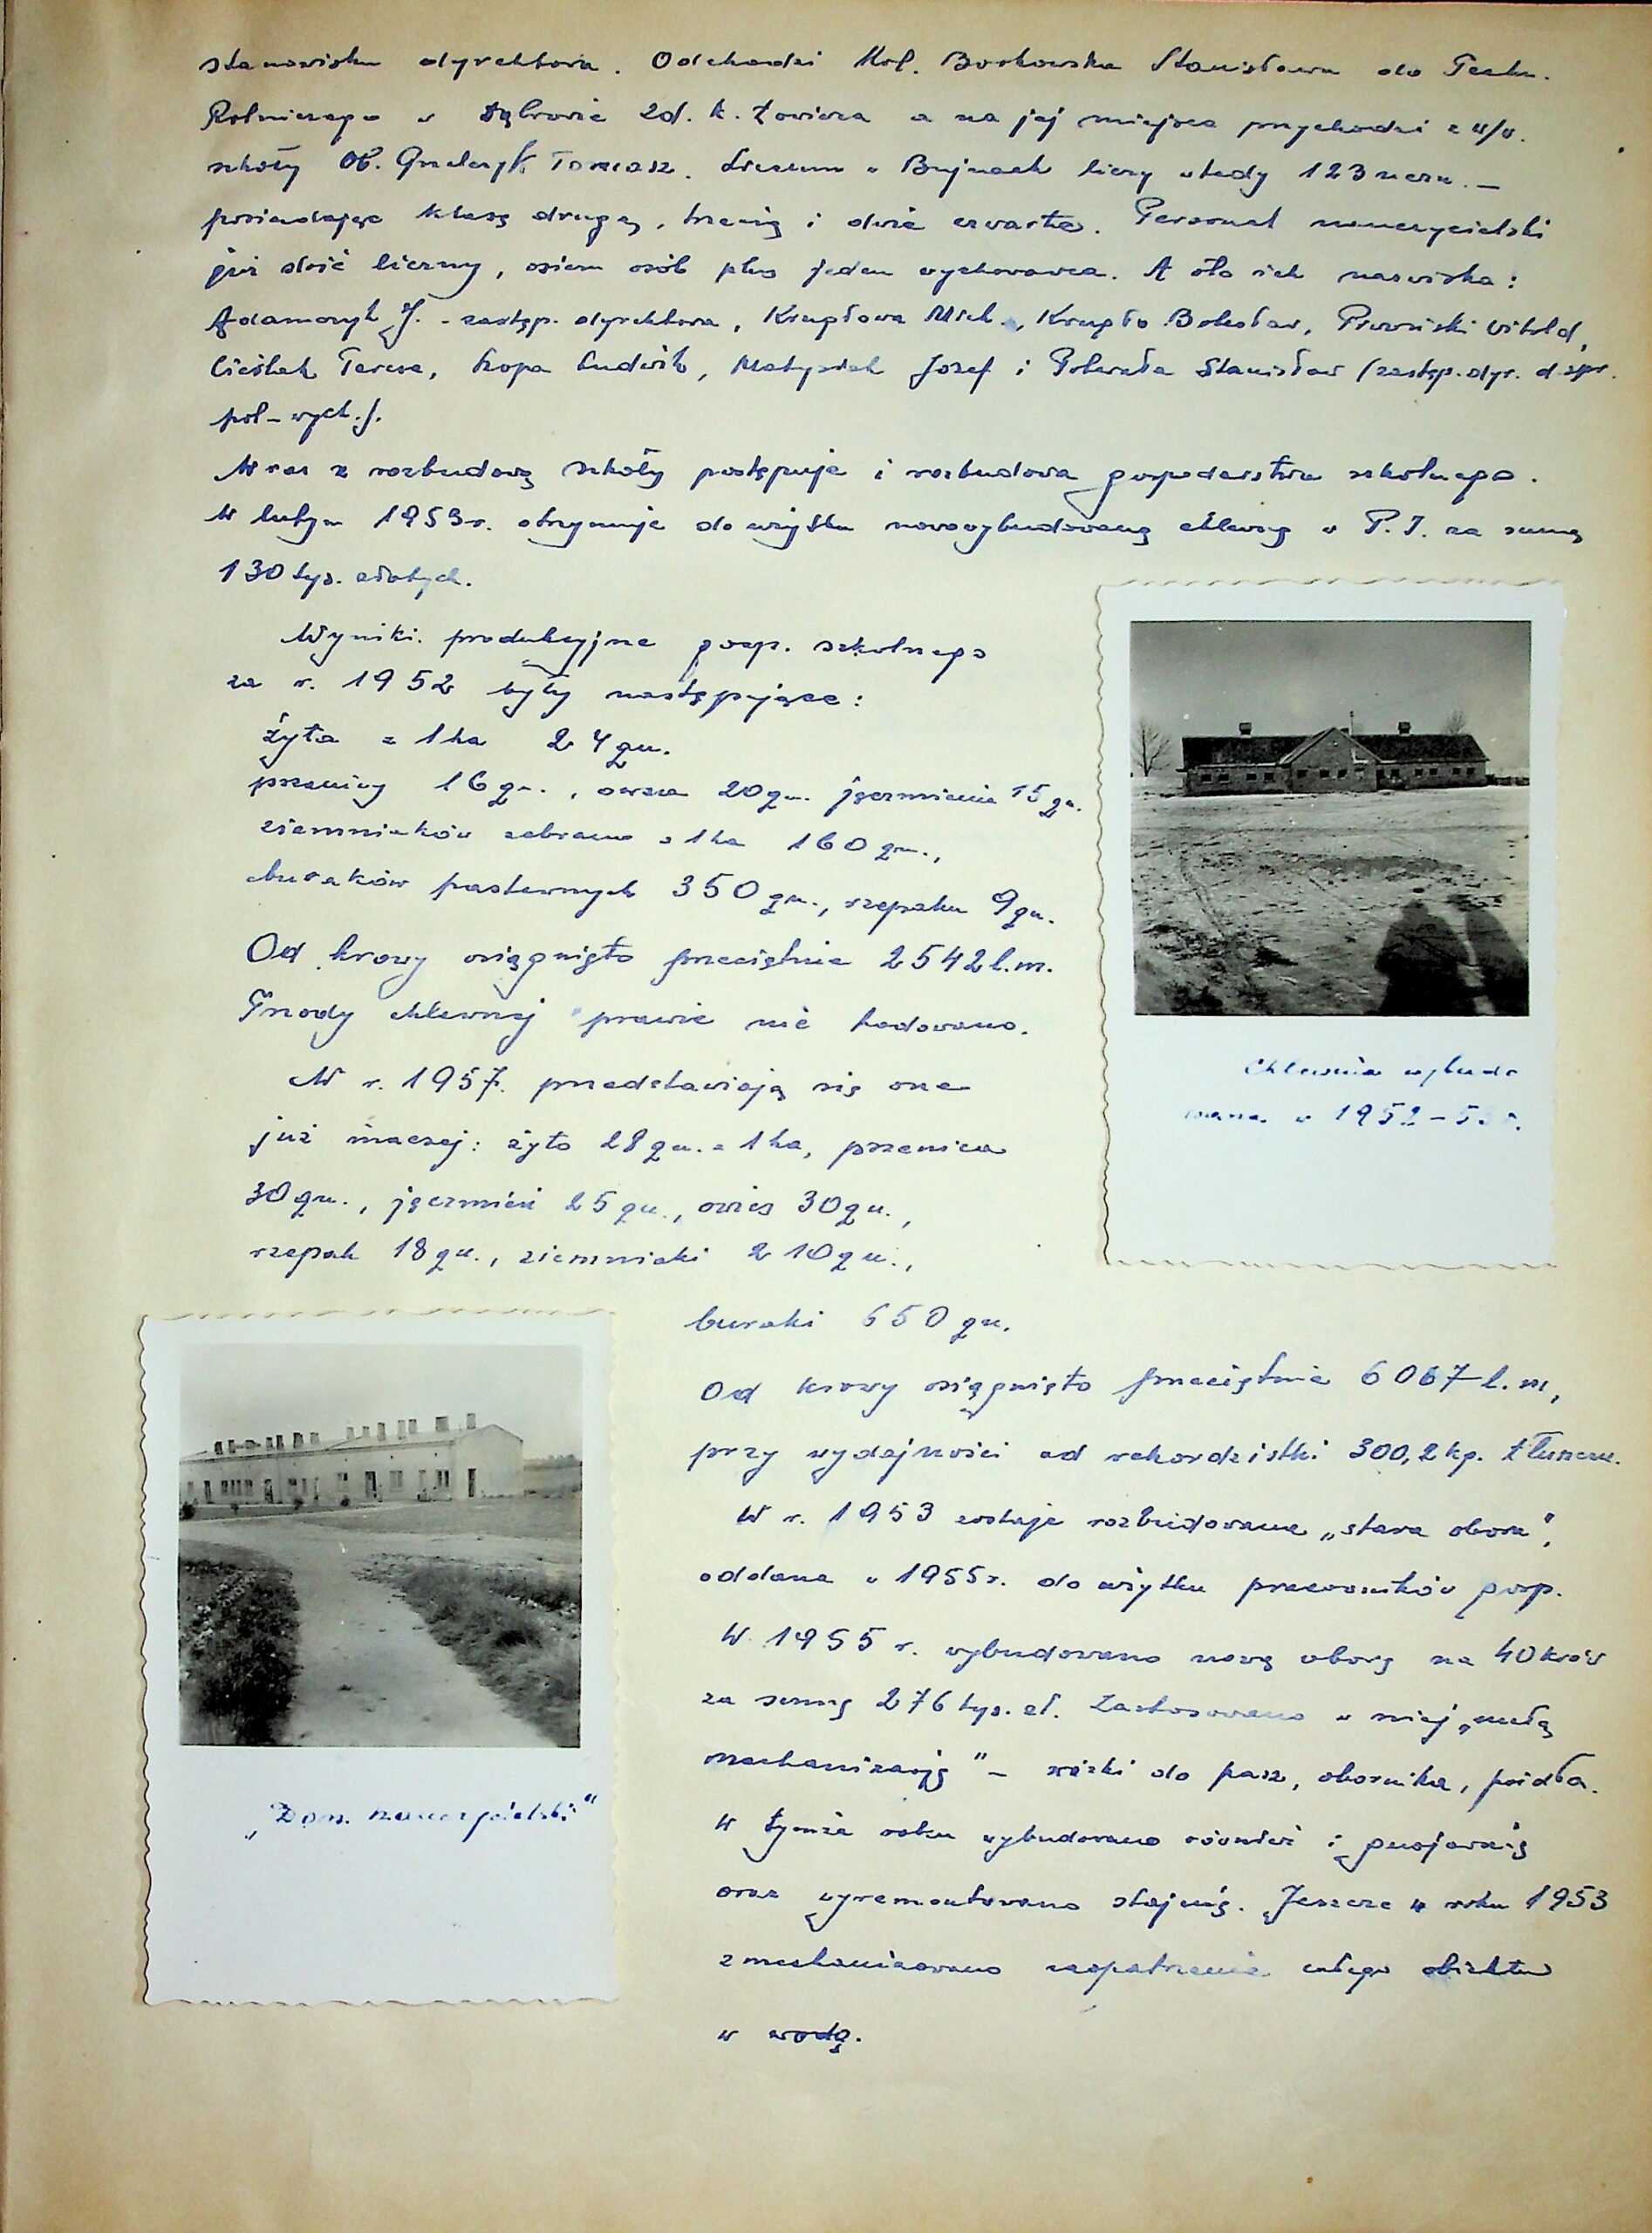 stanowisku dyrektora. Odchodzi Kol. Borkowska Stanisława do Techn.
Rolniczego w Dąbrowie Zd. k. Łowicza a na jej miejsce przychodzi z w/w.
szkoły Ob. Tomasz. Liceum w Bujnach liczy wtedy 123 uczn. –
posiadając klasę drugą, trzecią i dwie czwarte. Personel nauczycielski
już dość liczny, osiem osób plus jeden wychowawca. A oto ich nazwiska:
Adamczyk J. - zastęp. dyrektora, Krupłowa Mich., Krupło Bolesław, Witold,
Cieślak Teresa, Kopa Ludwik, Matysiak Józef i Stanisław (zastęp. dyr. d. spr.
pol-wych.).
Wraz z rozbudową szkoły postępuje i rozbudowa gospodarstwa szkolnego.
W lutym 1953r. otrzymuje do użytku nowowybudowaną chlewnię w P.T. za sumę
130 tys. złotych.
Wyniki produkcyjne gosp. szkolnego
za r. 1952 były następujące:
żyta z 1 ha 24 qu.
pszenicy 16 qu., owsa 20 qu. jęczmienia 15 qu.
ziemniaków zebrano z 1 ha 160 qu.,
buraków pastewnych 350 qu., rzepaku 9 qu.
Od krowy osiągnięto przeciętnie 2542 l.m.
Trzody chlewnej prawie nie hodowano.
W r. 1957. przedstawiają się one
już inaczej: żyto 28 qu. z 1 ha, pszenica
30 qu., jęczmień 25 qu., owies 30 qu.,
rzepak 18 qu., ziemniaki 210 qu.,
buraki 650 qu.
Od krowy osiągnięto przeciętnie 6067 l.m,
przy wydajności od rekordzistki 300,2 kg. tłuszczu.
W r. 1953 zostaje rozbudowana „stara obora",
oddana w 1955r. do użytku pracowników gosp.
W 1955 r. wybudowano nową oborę na 40 krów
za sumę 276 tys. zł. Zastosowano w niej „małą
mechanizację" – wózki do pasz, obornika, poidła.
W tymże roku wybudowano również i gnojownię
oraz wyremontowano stajnię. Jeszcze w roku 1953
zmechanizowano zaopatrzenie całego obiektu
w wodę.
Chlewnia wybudo
wana w 1952-53r.
„Dom nauczycielski"